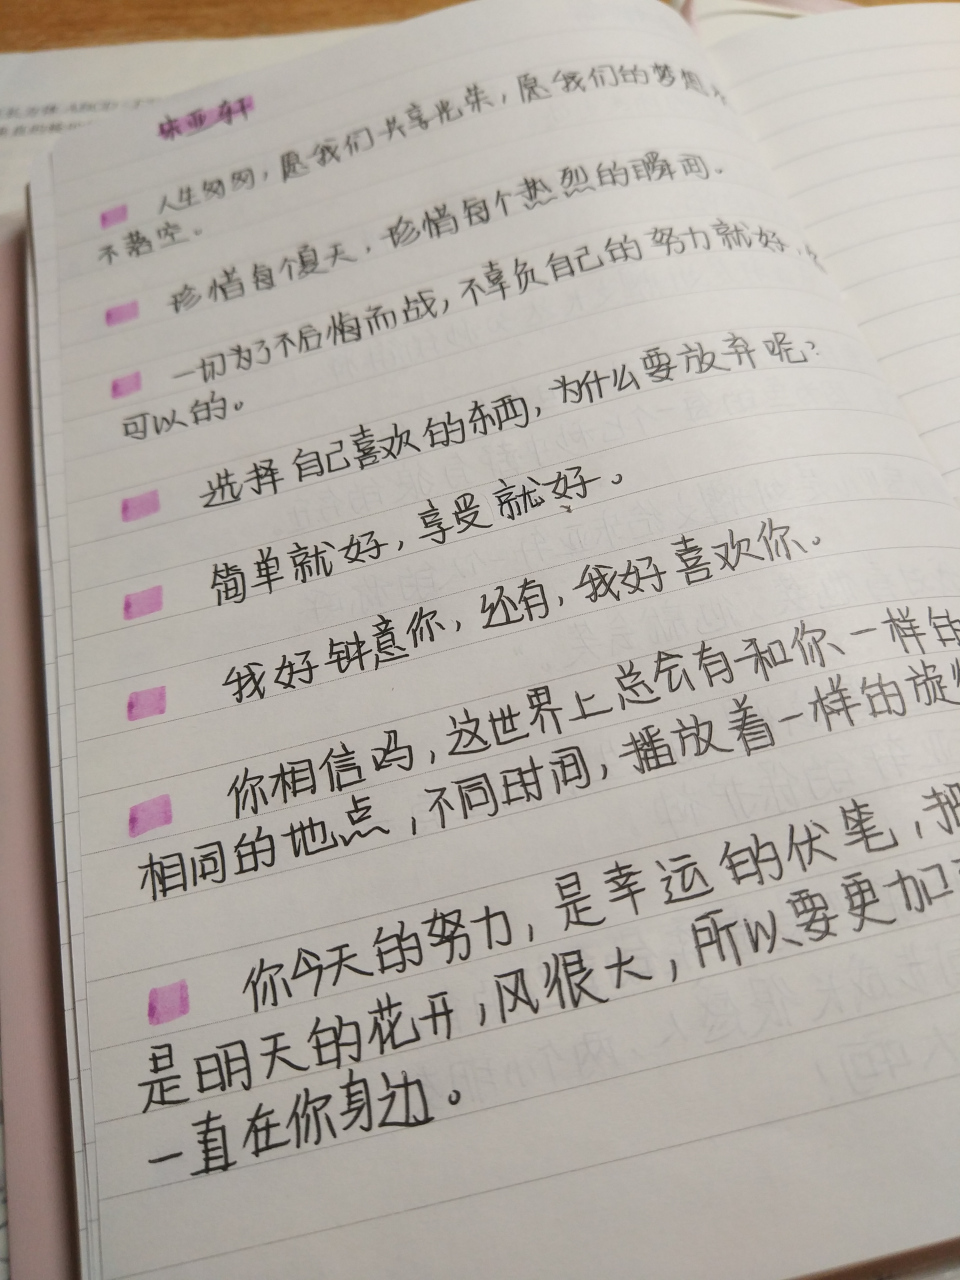 宋亚轩
人生匆匆，愿我们共享光荣，愿我们的梦想
不落空。
珍惜每个夏天，珍惜每个热烈的瞬间。
一切为了不后悔而战，不辜负自己的努力就好，
可以的。
选择自己喜欢的东西，为什么要放弃呢？
简单就好，享受就好。
我好钟意你，还有，我好喜欢你。
你相信吗，这世界上总会有一和你一样的
相同的地点，不同时间，播放着一样的旋
你今天的努力，是幸运的伏笔，
是明天的花开，风很大，所以要更加
一直在你身边。